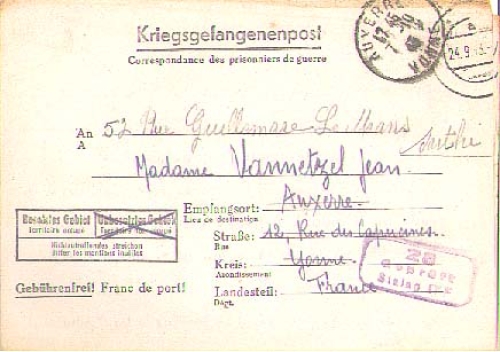 Kriegsgefangenenpost
Correspondance des prisonniers de guerre
AUXERRE
24.9.43
An
A
52 Rue Guillemare Le Mans
Sarthe
Madame Vannetzel Jean
Empfangsort: Auxerre
Lieu de destination
Straße: 12, Rue des Capucines
Rue
Kreis: Yonne
Arrondissement
Landesteil: France
Dépt.
Besetztes Gebiet
Territoire occupé
Unbesetztes Gebiet
Territoire non occupé
Nichtzutreffendes streichen
Biffer les mentions inutiles
Gebührenfrei! Franc de port!
28
Geprüft
Stalag